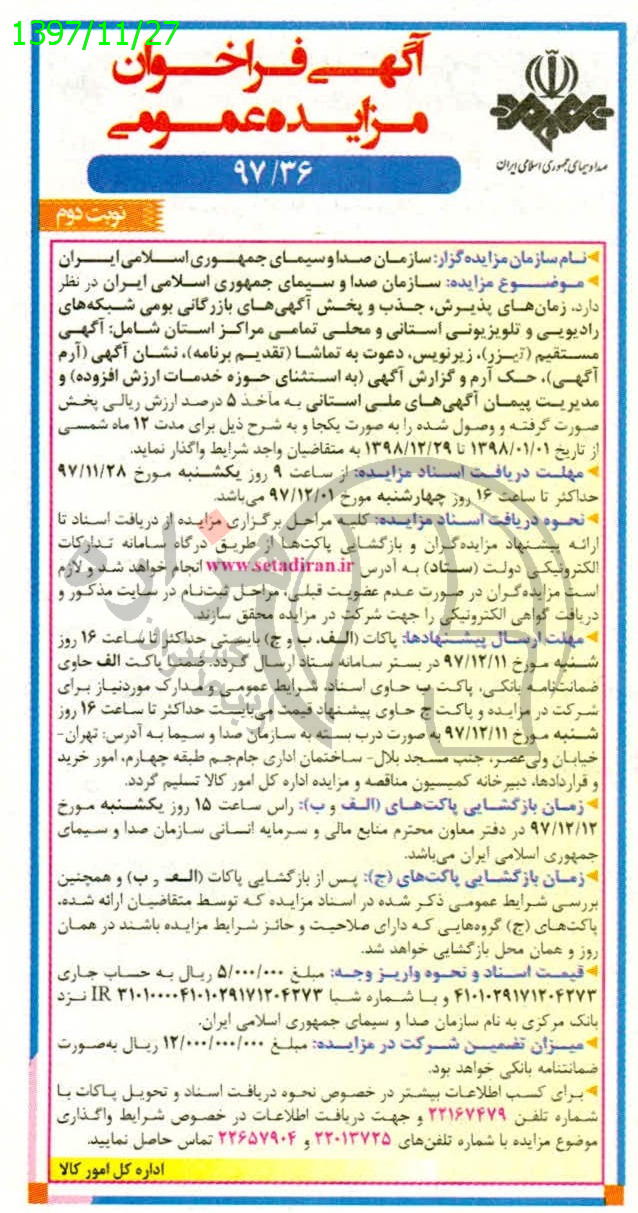 1397/11/27
آگهی فراخوان
مزایده عمومی
صدا و سیمای جمهوری اسلامی ایران
۹۷/۳۶
نوبت دوم
نام سازمان مزایده گزار: سازمان صدا و سیمای جمهوری اسلامی ایران
موضوع مزایده: سازمان صدا و سیمای جمهوری اسلامی ایران در نظر
دارد، زمان‌های پذیرش، جذب و پخش آگهی‌های بازرگانی بومی شبکه‌های
رادیویی و تلویزیونی استانی و محلی تمامی مراکز استان شامل: آگهی
مستقیم (تیزر)، زیرنویس، دعوت به تماشا (تقدیم برنامه)، نشان آگهی (آرم
آگهی)، حک آرم و گزارش آگهی (به استثنای حوزه خدمات ارزش افزوده) و
مدیریت پیمان آگهی‌های ملی استانی به مأخذ ۵ درصد ارزش ریالی پخش
صورت گرفته و وصول شده را به صورت یکجا و به شرح ذیل برای مدت ۱۲ ماه شمسی
از تاریخ ۱۳۹۸/۰۱/۰۱ تا ۱۳۹۸/۱۲/۲۹ به متقاضیان واجد شرایط واگذار نماید.
مهلت دریافت اسناد مزایده: از ساعت ۹ روز یکشنبه مورخ ۹۷/۱۱/۲۸
حداکثر تا ساعت ۱۶ روز چهارشنبه مورخ ۹۷/۱۲/۰۱ می‌باشد.
نحوه دریافت اسناد مزایده: کلیه مراحل برگزاری مزایده از دریافت اسناد تا
ارائه پیشنهاد مزایده‌گران و بازگشایی پاکت‌ها از طریق درگاه سامانه تدارکات
الکترونیکی دولت (ستاد) به آدرس www.setadiran.ir انجام خواهد شد و لازم
است مزایده‌گران در صورت عدم عضویت قبلی، مراحل ثبت‌نام در سایت مذکور و
دریافت گواهی الکترونیکی را جهت شرکت در مزایده محقق سازند.
مهلت ارسال پیشنهادها: پاکات (الف، ب و ج) بایستی حداکثر تا ساعت ۱۶ روز
شنبه مورخ ۹۷/۱۲/۱۱ در بستر سامانه ستاد ارسال گردد. ضمنا پاکت الف حاوی
ضمانتنامه بانکی، پاکت ب حاوی اسناد، شرایط عمومی و مدارک موردنیاز برای
شرکت در مزایده و پاکت ج حاوی پیشنهاد قیمت می‌بایست حداکثر تا ساعت ۱۶ روز
شنبه مورخ ۹۷/۱۲/۱۱ به صورت درب بسته به سازمان صدا و سیما به آدرس: تهران-
خیابان ولی‌عصر، جنب مسجد بلال- ساختمان اداری جام‌جم طبقه چهارم، امور خرید
و قراردادها، دبیرخانه کمیسیون مناقصه و مزایده اداره کل امور کالا تسلیم گردد.
زمان بازگشایی پاکت‌های (الف و ب): راس ساعت ۱۵ روز یکشنبه مورخ
۹۷/۱۲/۱۲ در دفتر معاون محترم منابع مالی و سرمایه انسانی سازمان صدا و سیمای
جمهوری اسلامی ایران می‌باشد.
زمان بازگشایی پاکت‌های (ج): پس از بازگشایی پاکات (الف و ب) و همچنین
بررسی شرایط عمومی ذکر شده در اسناد مزایده که توسط متقاضیان ارائه شده،
پاکت‌های (ج) گروه‌هایی که دارای صلاحیت و حائز شرایط مزایده باشند در همان
روز و همان محل بازگشایی خواهد شد.
قیمت اسناد و نحوه واریز وجه: مبلغ ۵/۰۰۰/۰۰۰ ریال به حساب جاری
۴۱۰۱۰۲۹۱۷۱۲۰۴۲۷۳ و با شماره شبا IR ۳۱۰۱۰۰۰۰۴۱۰۱۰۲۹۱۷۱۲۰۴۲۷۳ نزد
بانک مرکزی به نام سازمان صدا و سیمای جمهوری اسلامی ایران.
میزان تضمین شرکت در مزایده: مبلغ ۱۲/۰۰۰/۰۰۰/۰۰۰ ریال به‌صورت
ضمانتنامه بانکی خواهد بود.
برای کسب اطلاعات بیشتر در خصوص نحوه دریافت اسناد و تحویل پاکات با
شماره تلفن ۲۲۱۶۷۴۷۹ و جهت دریافت اطلاعات در خصوص شرایط واگذاری
موضوع مزایده با شماره تلفن‌های ۲۲۰۱۳۷۲۵ و ۲۲۶۵۷۹۰۴ تماس حاصل نمایید.
اداره کل امور کالا